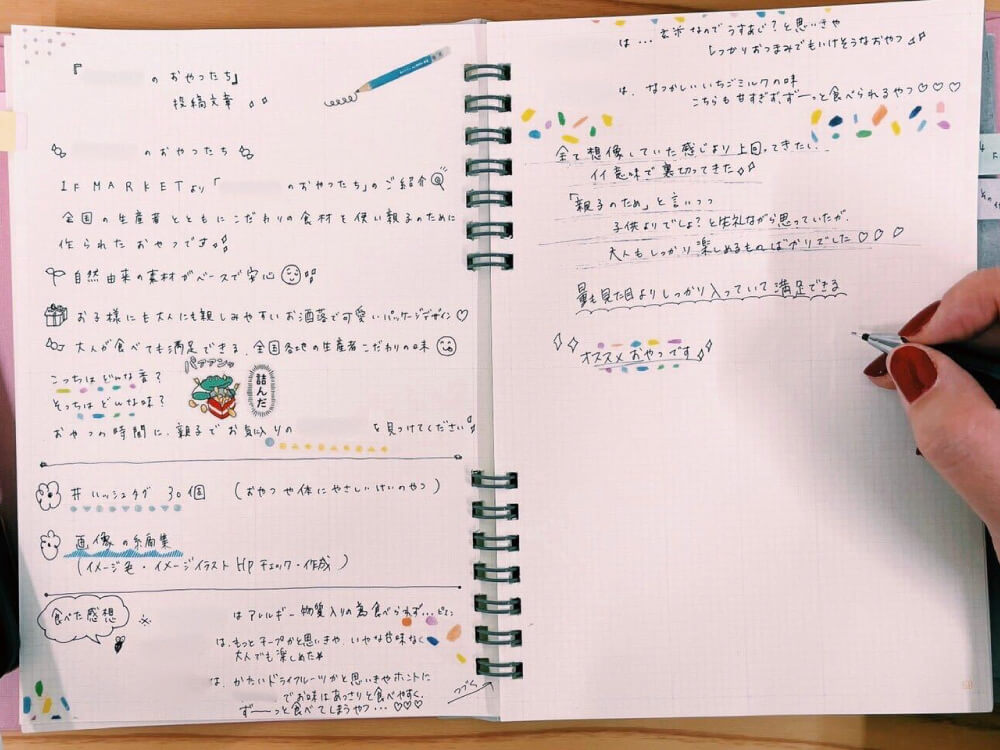 『 のおやつたち』
投稿文章
のおやつたち
IF MARKETより「 のおやつたち」のご紹介
全国の生産者とともにこだわりの食材を使い親子のために
作られたおやつです
自然由来の素材がベースで安心
お子様にも大人にも親しみやすいお洒落で可愛いパッケージデザイン♡
大人が食べても満足できる、全国各地の生産者こだわりの味
こっちはどんな音?
そっちはどんな味?
パアアンッ
詰んだ
おやつの時間に、親子でお気に入りの を見つけてください
#ハッシュタグ 30個 (おやつや体にやさしいけいのやつ)
画像の編集
(イメージ色・イメージイラスト Hpチェック・作成)
食べた感想
※ はアレルギー物質入りの為食べられず…ピエン
は、もっとチープかと思いきや、いやな甘味なく
大人でも楽しめた
は、かたいドライフルーツかと思いきやホントに
でお味はあっさりと食べやすく、
ず――っと食べてしまうやつ…♡♡♡
つづく
は…玄米なのでうすあじ?と思いきや
しっかりおつまみでもいけそうなおやつ
は、なつかしいいちごミルクの味
こちらも甘すぎず、ず――っと食べられるやつ♡♡♡
全て想像していた感じより上回ってきたし、
イイ意味で裏切ってきた
「親子のため」と言いつつ
子供よりでしょ?と失礼ながら思っていたが、
大人もしっかり楽しめるものばかりでした♡♡♡
量も見た目よりしっかり入っていて満足できる
オススメおやつです